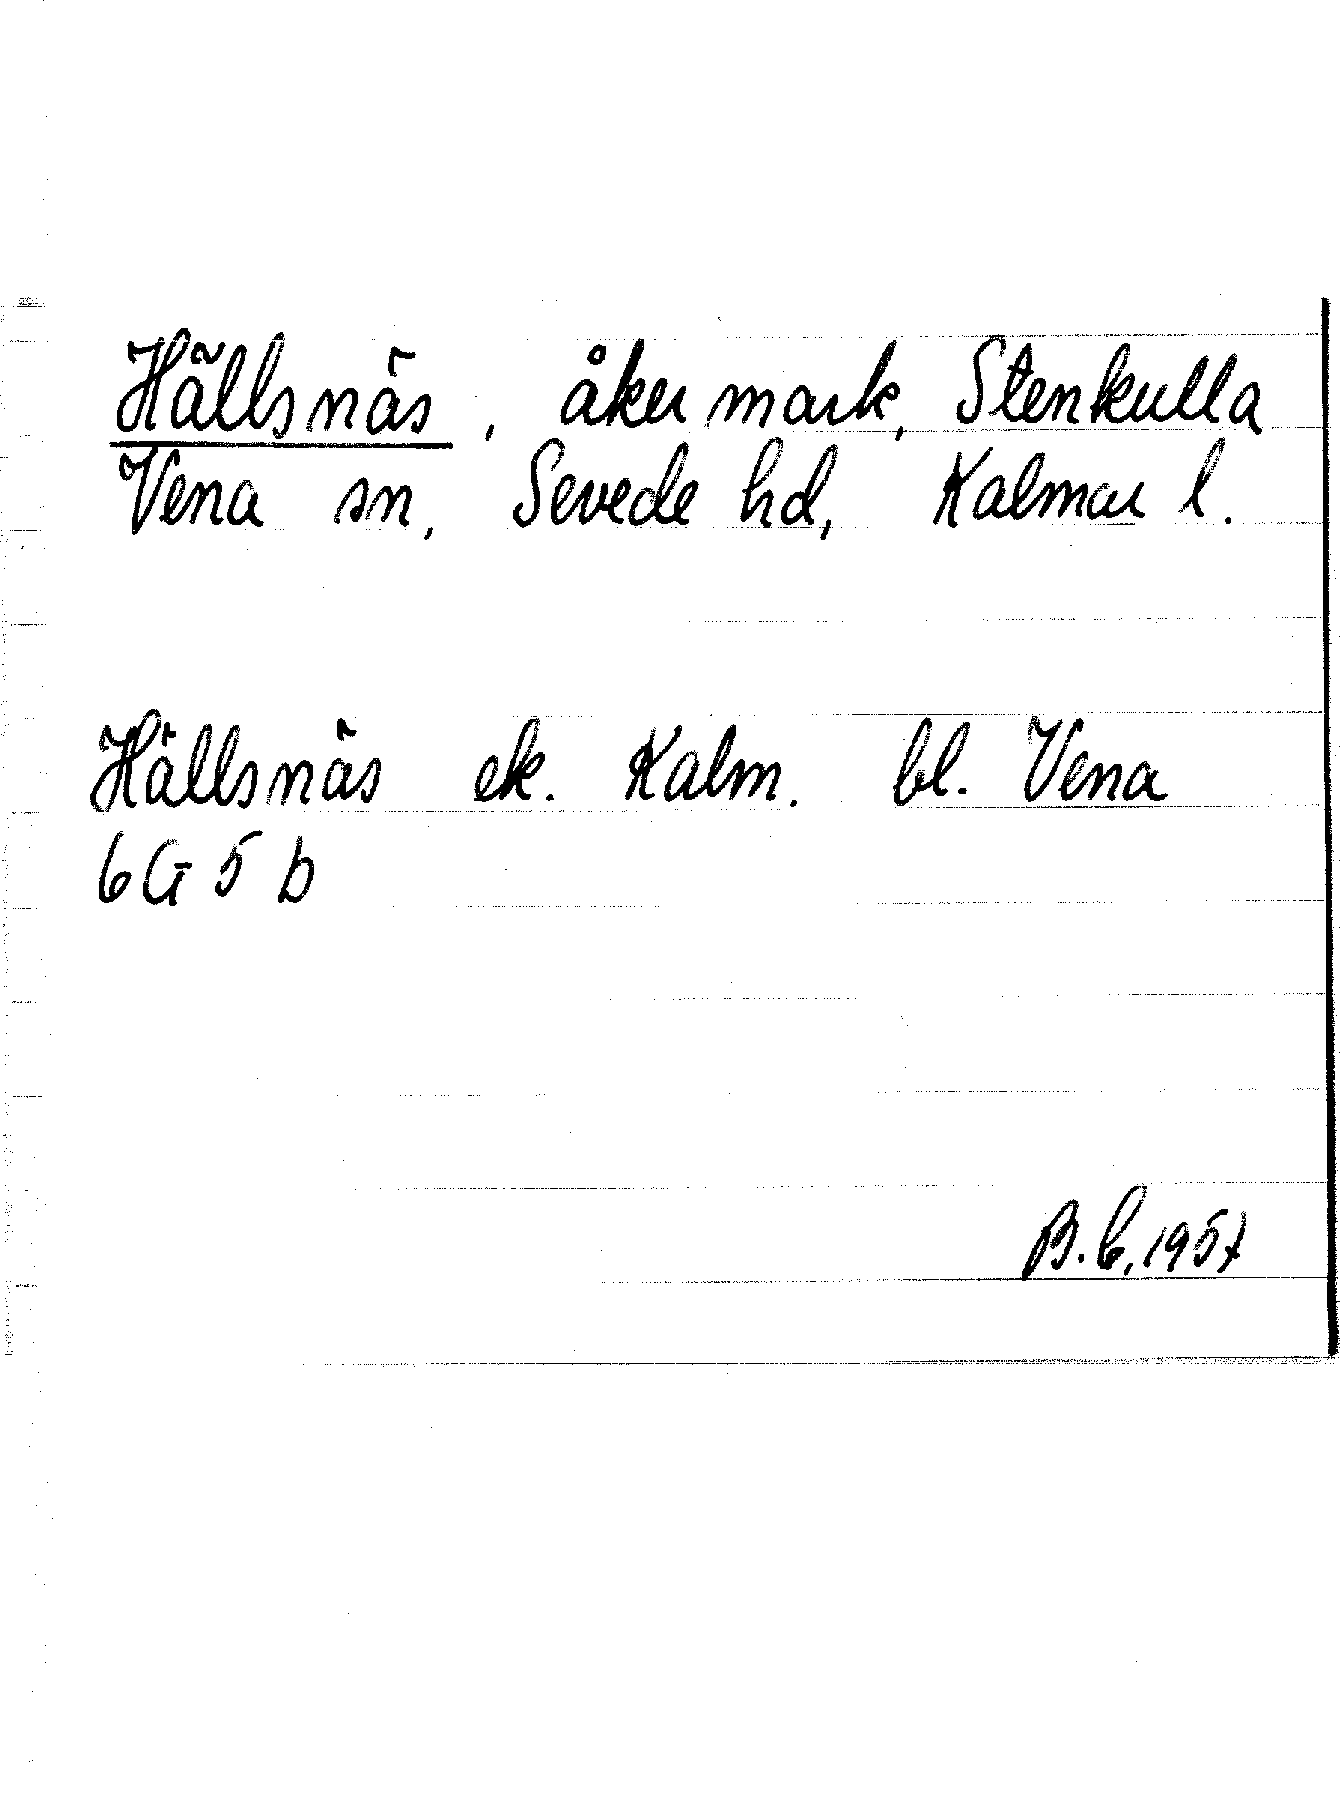 Hällsnäs, åkermark, Stenkulla
Vena sn, Sevede hd, Kalmar l.
Hällsnäs ek. Kalm. bl. Vena
6G 5 b
B. C, 1957